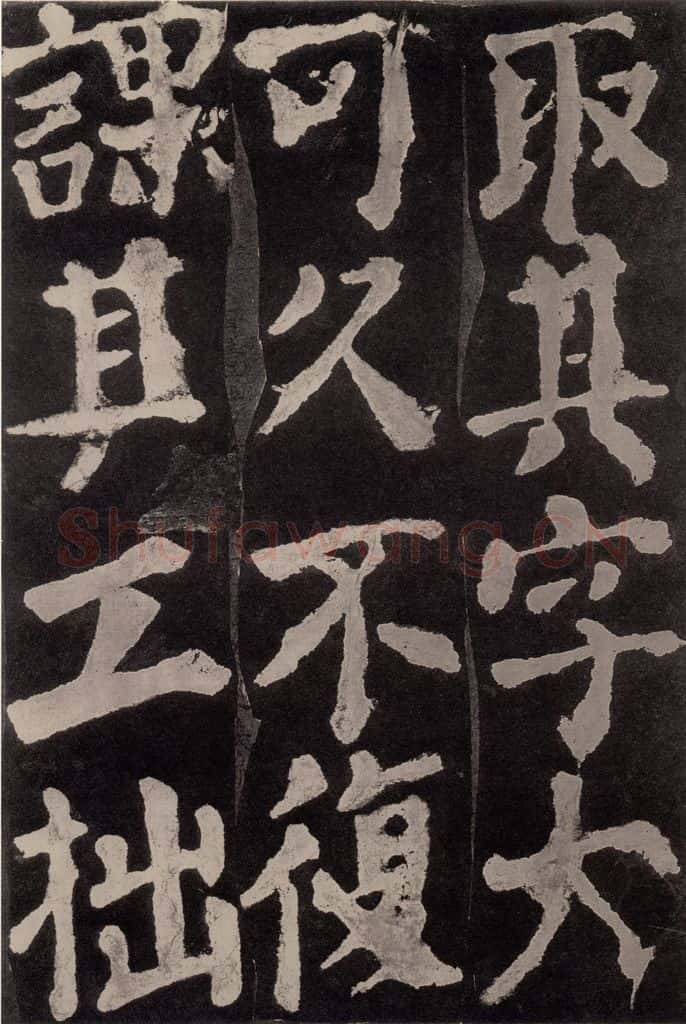 取其字大
可久不復
課其工拙
Shufawang.CN